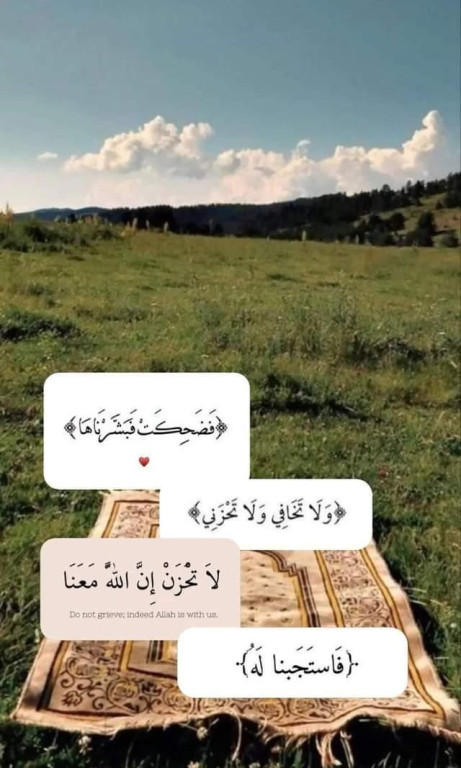 ﴿فَضَحِكَتْ فَبَشَّرْنَاهَا﴾
﴿وَلَا تَخَافِي وَلَا تَحْزَنِي﴾
لاَ تَحْزَنْ إِنَّ اللَّهَ مَعَنَا
Do not grieve; indeed Allah is with us.
﴿فَاستَجَبنا لَهُ﴾